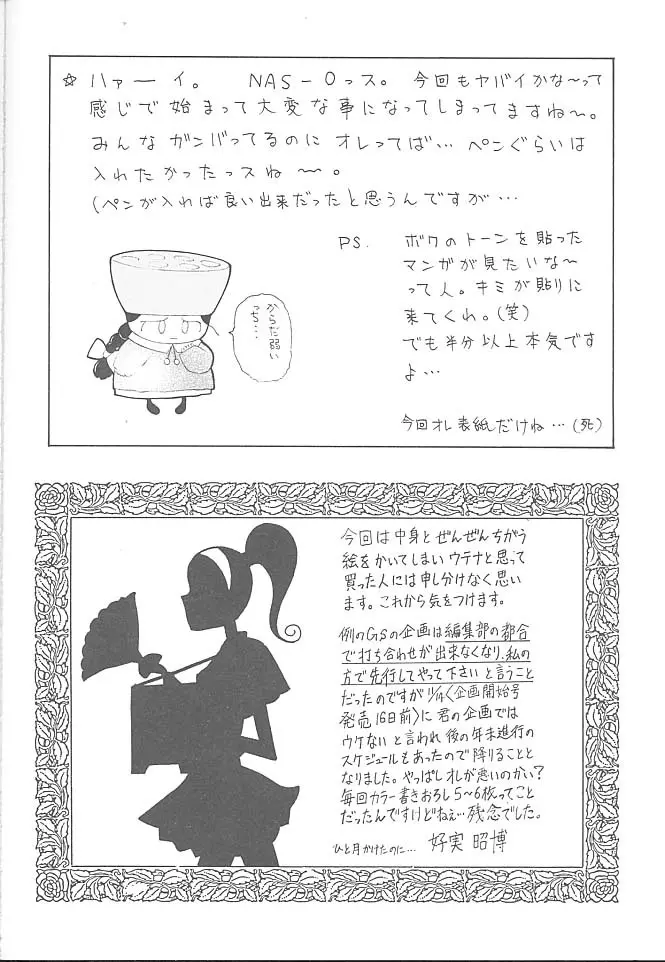 ☆ ハァーイ。 NAS-Oっス。今回もヤバイかな〜って
感じで始まって大変な事になってしまってますね〜。
みんなガンバってるのにオレってば…ペンぐらいは
入れたかったっスね〜。
(ペンが入れば良い出来だったと思うんですが…
PS. ボクのトーンを貼った
マンガが見たいな〜
って人。キミが貼りに
来てくれ。(笑)
でも半分以上本気です
よ…
からだ弱い
っち…
今回オレ表紙だけね…(死)
今回は中身とぜんぜんちがう
絵をかいてしまいウテナと思って
買った人には申し分けなく思い
ます。これから気をつけます。
例のGSの企画は編集部の都合
で打ち合わせが出来なくなり、私の
方で先行してやって下さいと言うこと
だったのですが11/14〈企画開始号
発売16日前〉に君の企画では
ウケないと言われ後の年末進行の
スケジュールもあったので降りることと
なりました。やっぱしオレが悪いのかい?
毎回カラー書きおろし5〜6枚ってこと
だったんですけどねぇ…残念でした。
ひと月かけたのに… 好実昭博